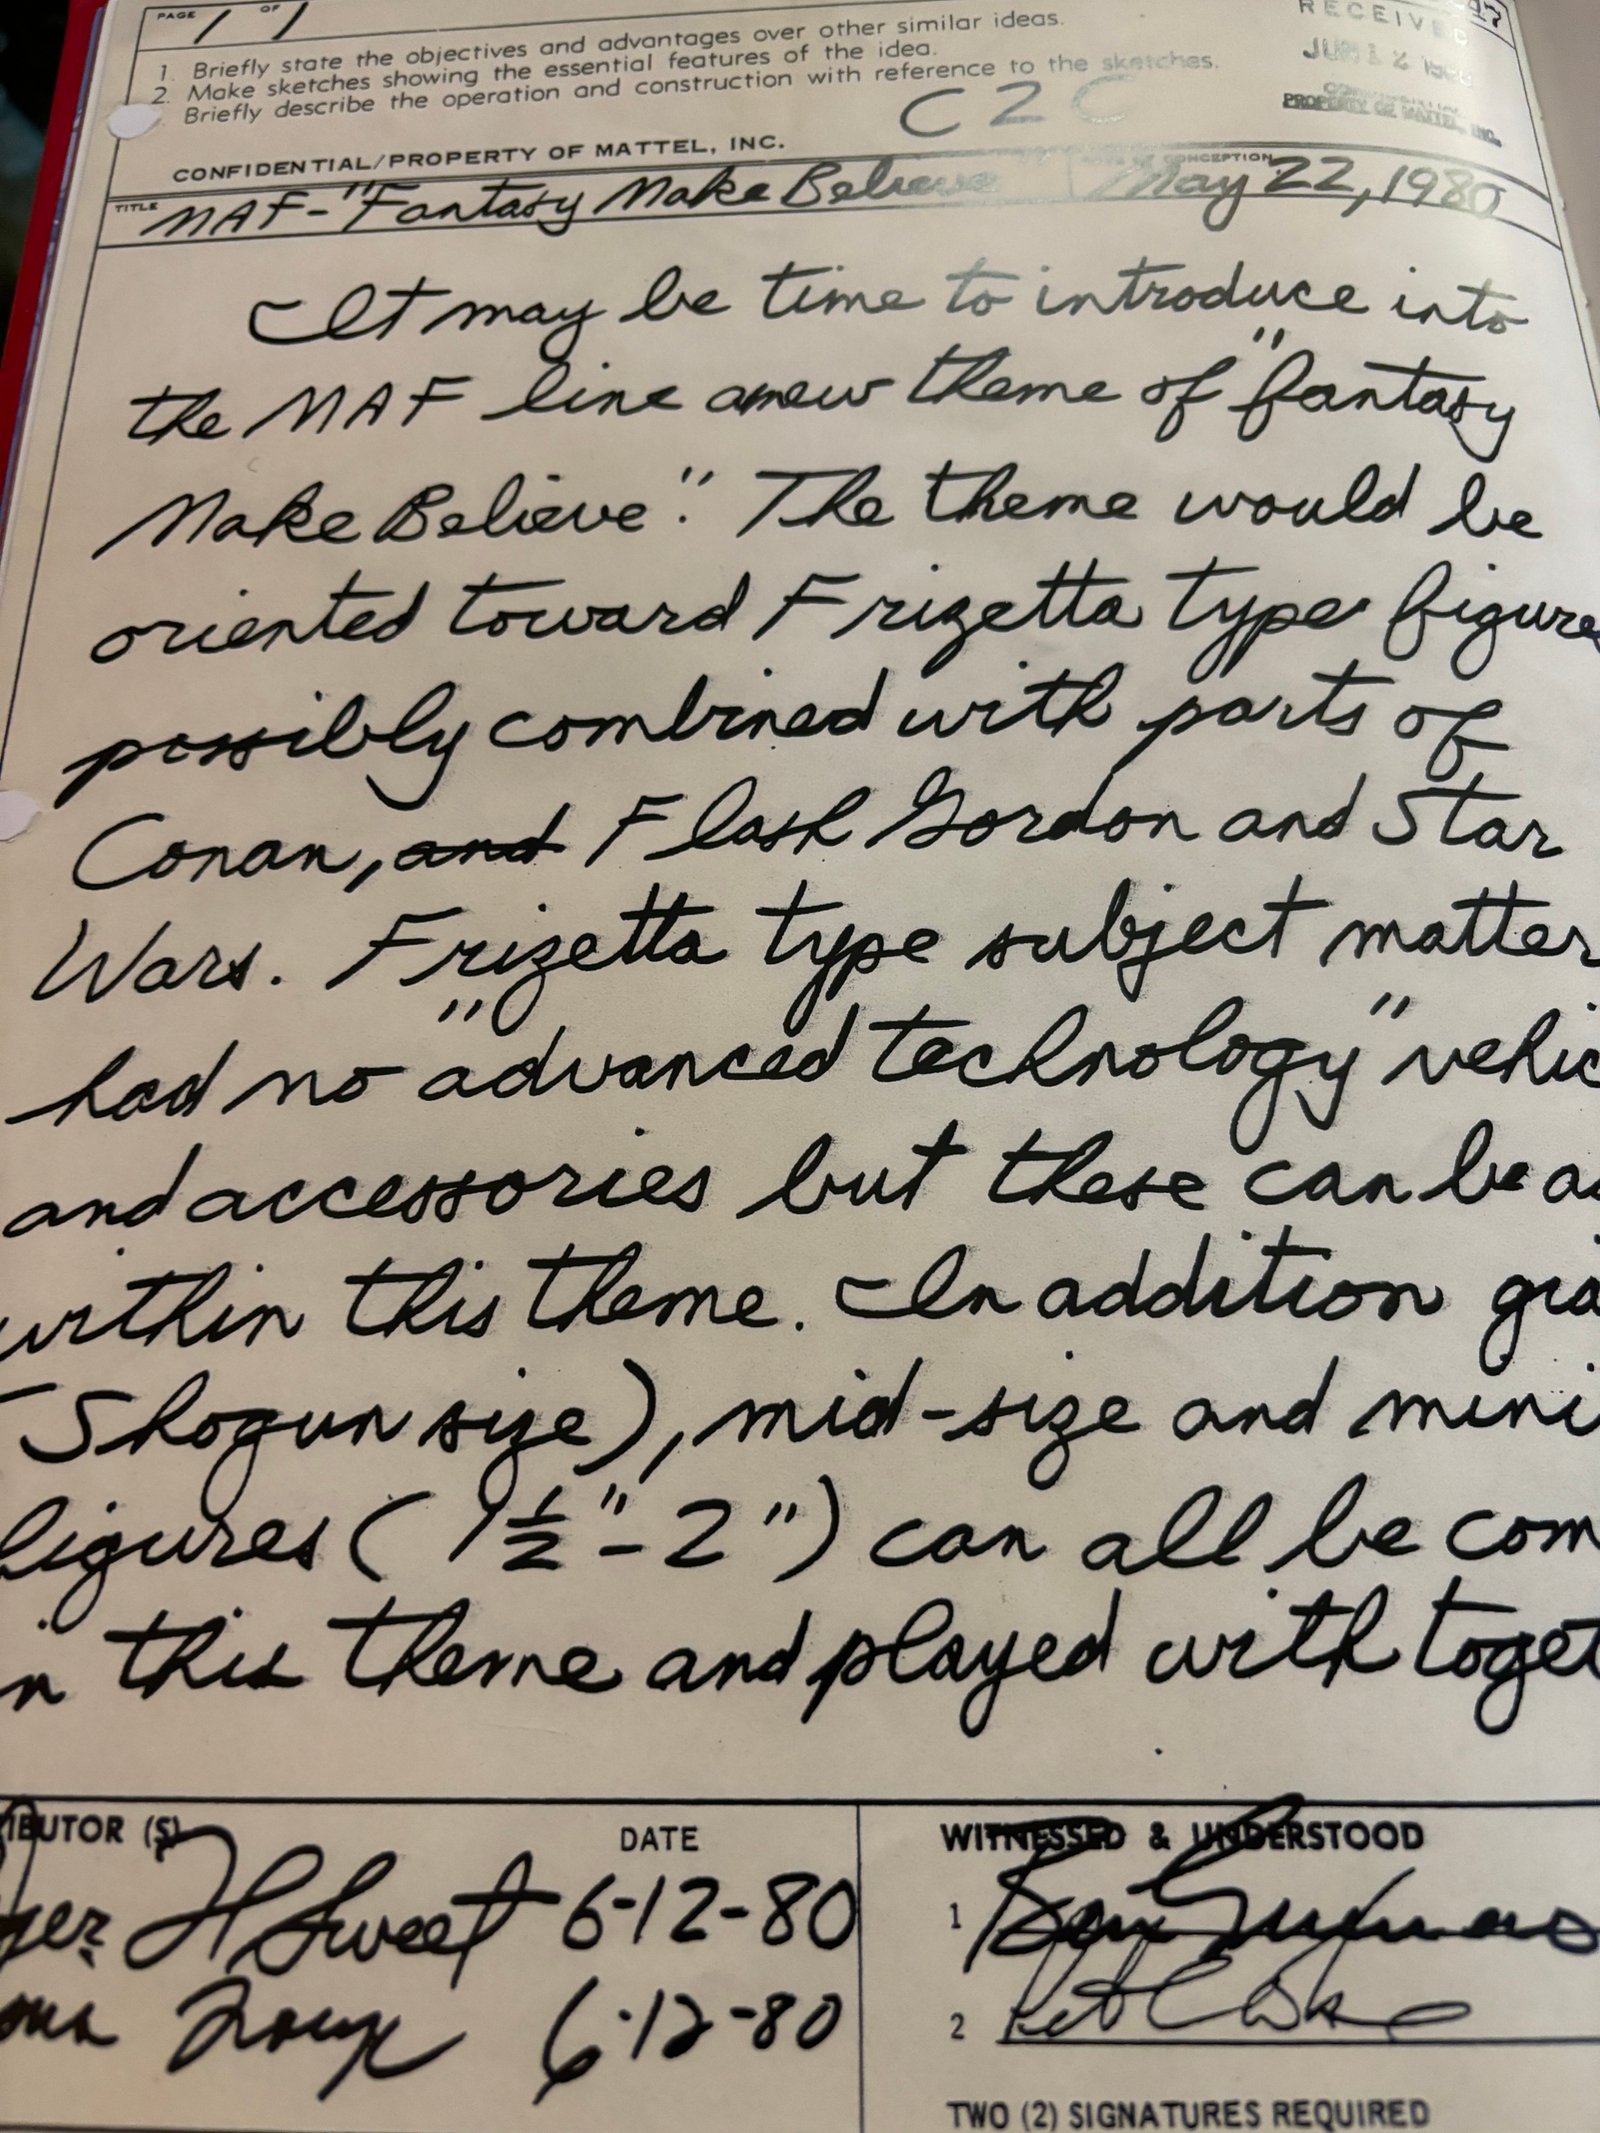 PAGE 1 OF 1
1. Briefly state the objectives and advantages over other similar ideas.
2. Make sketches showing the essential features of the idea.
Briefly describe the operation and construction with reference to the sketches.
RECEIVED
JUN 12
PROPERTY OF MATTEL, INC.
C2C
CONFIDENTIAL/PROPERTY OF MATTEL, INC.
TITLE MAF-"Fantasy Make Believe CONCEPTION May 22, 1980
It may be time to introduce into
the MAF line a new theme of "fantasy
Make Believe". The theme would be
oriented toward Frizetta type figure
possibly combined with parts of
Conan, and Flash Gordon and Star
Wars. Frizetta type subject matter
had no "advanced technology" vehic
and accessories but these can be a
within this theme. In addition gia
(Shogun size), mid-size and mini
figures (1 1/2"-2") can all be com
in this theme and played with toget
IBUTOR (S) DATE WITNESSED & UNDERSTOOD
ger H Sweet 6-12-80 1
6-12-80 2
TWO (2) SIGNATURES REQUIRED